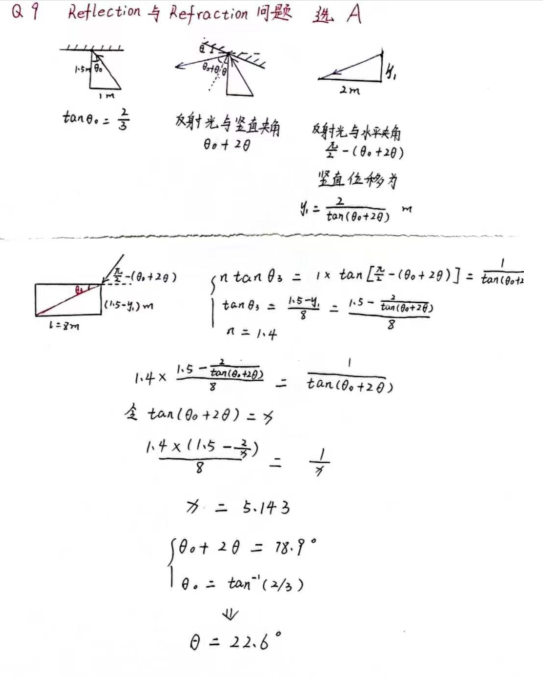 Q9 Reflection 与 Refraction 问题 选 A
1.5m θ₀
1m
θ
θ₀+θ θ
y₁
2m
tanθ₀ = 2/3
反射光与竖直夹角
θ₀+2θ
反射光与水平夹角
π/2-(θ₀+2θ)
竖直位移为
y₁ = 2/tan(θ₀+2θ) m
θ₃
π/2-(θ₀+2θ)
(1.5-y₁)m
L=8m
{ n tanθ₃ = 1× tan[π/2-(θ₀+2θ)] = 1/tan(θ₀+2
tanθ₃ = (1.5-y₁)/8 = (1.5 - 2/tan(θ₀+2θ))/8
n = 1.4
1.4× (1.5 - 2/tan(θ₀+2θ))/8 = 1/tan(θ₀+2θ)
令 tan(θ₀+2θ) = x
1.4×(1.5-2/x)/8 = 1/x
x = 5.143
{ θ₀+2θ = 78.9°
θ₀ = tan⁻¹(2/3)
⇓
θ = 22.6°